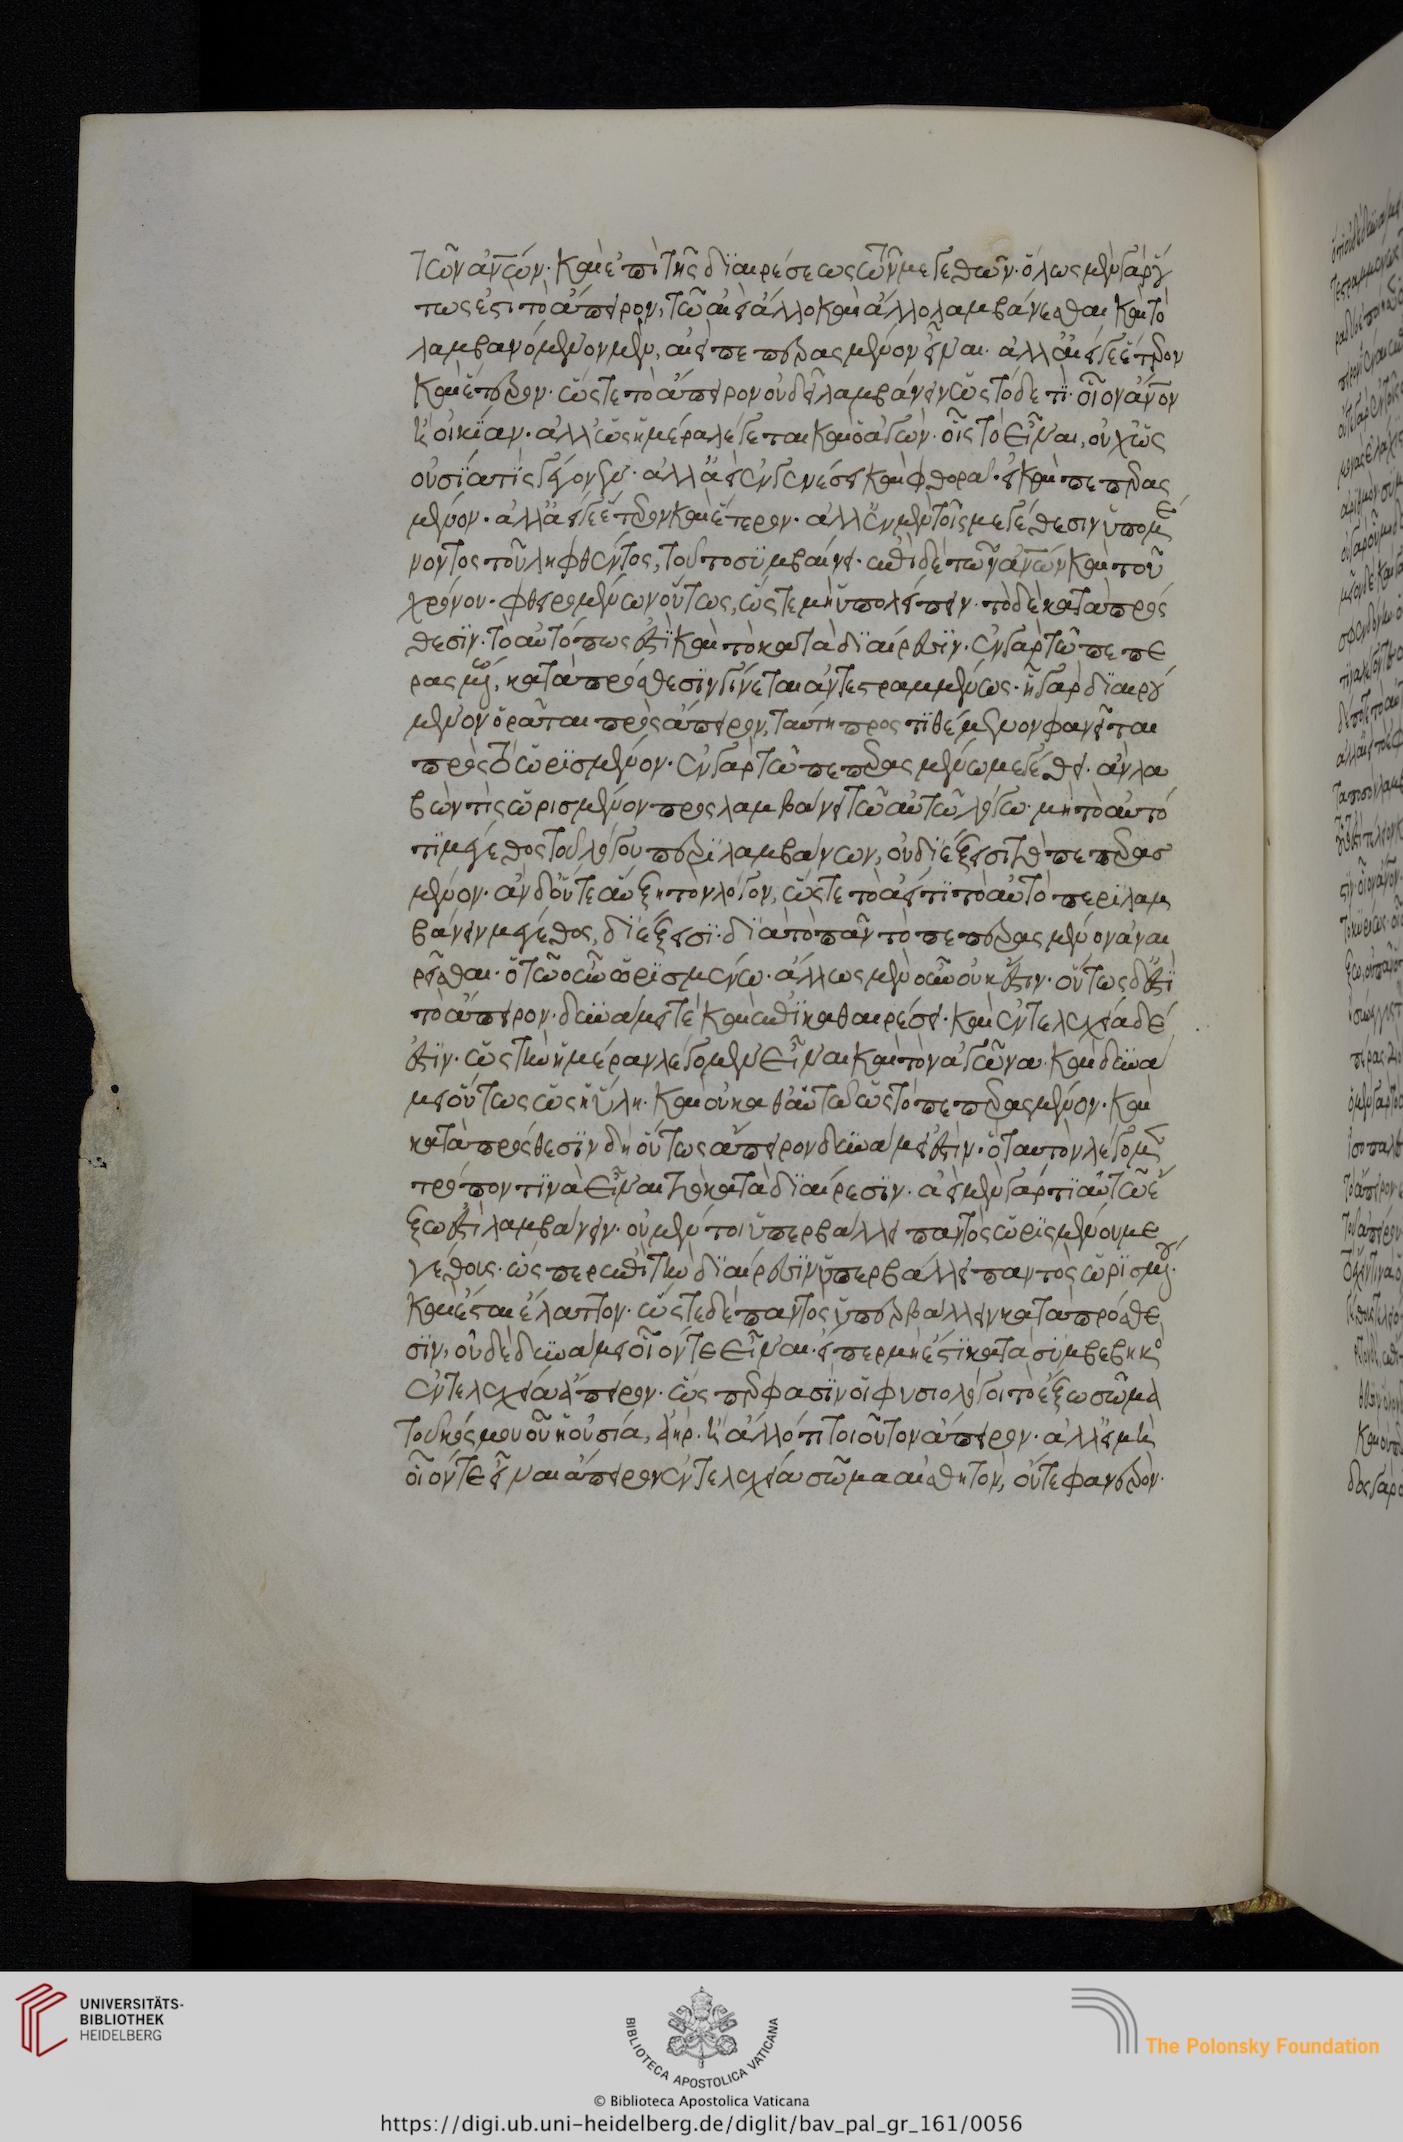 τῶν ἀν̅ων. καὶ ἐπὶ τῆς διαιρέσεως τῶν μεγεθῶν. ὅλως μὲν γὰρ οὕ
τως ἔστι τὸ ἄπειρον, τῶ αἰεὶ ἄλλο καὶ ἄλλο λαμβάνεσθαι καὶ τὸ
λαμβανόμενον μὲν, αἰεὶ πεπερασμένον εἶναι. ἀλλ' αἰεί γε ἕτερον
καὶ ἕτερον. ὥστε τὸ ἄπειρον οὐ δεῖ λαμβάνειν ὡς τόδε τι. οἷον ἄν̅ον
ἢ οἰκίαν. ἀλλ' ὡς ἡμέρα λέγεται καὶ ὁ ἀγών. οἷς τὸ εἶναι, οὐχ ὡς
οὐσία τις γέγονεν. ἀλλ' ἀεὶ ἐν γενέσει καὶ φθορᾶ. εἰ καὶ πεπερασ
μένον. ἀλλ' ἀεί γε ἕτερον καὶ ἕτερον. ἀλλ' ἐν μὲν τοῖς μεγέθεσιν ὑπομέ
νοντος τοῦ ληφθέντος, τοῦτο συμβαίνει. ἐπὶ δὲ τῶν ἀν̅ων καὶ τοῦ
χρόνου. φθειρομένων οὕτως, ὥστε μὴ ὑπολείπειν. τὸ δὲ κατὰ πρόσ
θεσιν. τὸ αὐτό πως ἐστὶ καὶ τὸ κατὰ διαίρεσιν. ἐν γὰρ τῶ πεπε
ρασμένω, κατὰ πρόσθεσιν γίνεται ἀντεστραμμένως. ἧ γὰρ διαιρού
μενον ὁρᾶται πρὸς ἄπειρον, ταύτη προστιθέμενον φανεῖται
πρὸς τὸ ὡρισμένον. ἐν γὰρ τῶ πεπερασμένω μεγέθει. ἂν λα
βών τις ὡρισμένον προσλαμβάνει τῶ αὐτῶ λόγω. μὴ τὸ αὐτό
τι μέγεθος τοῦ λόγου περιλαμβάνων, οὐ διέξεισι τὸ πεπερασ
μένον. ἂν δ' οὕτε αὔξη τὸν λόγον, ὥστε τὸ ἀεί τι τὸ αὐτὸ περιλαμ
βάνειν μέγεθος, διέξεισι. διὰ τὸ πᾶν τὸ πεπερασμένον ἀναι
ρεῖσθαι. ὁτωοῦν ὡρισμένω. ἄλλως μὲν οὖν οὐκ ἔστιν. οὕτως δ' ἔστι
τὸ ἄπειρον. δυνάμει τὲ καὶ ἐπὶ καθαιρέσει. καὶ ἐντελεχεία δέ
ἐστιν. ὡς τὴν ἡμέραν λέγομεν εἶναι καὶ τὸν ἀγῶνα. καὶ δυνά
μει οὕτως ὡς ἡ ὕλη. καὶ οὐ καθ' αὑτὸ ὡς τὸ πεπερασμένον. καὶ
κατὰ πρόσθεσιν δὴ οὕτως ἄπειρον δυνάμει ἐστὶν. ὃ ταυτὸν λέγομεν
τρόπον τινὰ εἶναι τῶ κατὰ διαίρεσιν. ἀεὶ μὲν γάρ τι αὐτῶ ἔ
ξω ἐστὶ λαμβάνειν. οὐ μέν τοι ὑπερβάλλει παντὸς ὡρισμένου με
γέθους. ὥς περ ἐπὶ τὴν διαίρεσιν ὑπερβάλλει παντὸς ὡρισμένου.
καὶ ἔσται ἔλαττον. ὥστε δὲ παντὸς ὑπερβάλλειν κατὰ πρόσθε
σιν, οὐδὲ δυνάμει οἷόν τε εἶναι. εἴπερ μὴ ἔστι κατὰ συμβεβηκὸς
ἐντελεχεία ἄπειρον. ὥς περ φασὶν οἱ φυσιολόγοι τὸ ἔξω σῶμα
τοῦ κόσμου οὗ ἡ οὐσία, ἀὴρ. ἢ ἄλλό τι τοιοῦτον ἄπειρον. ἀλλ' εἰ μὴ
οἷόν τε εἶναι ἄπειρον ἐντελεχεία σῶμα αἰσθητὸν, οὔτε φανερὸν.
UNIVERSITÄTS-
BIBLIOTHEK
HEIDELBERG
BIBLIOTECA APOSTOLICA VATICANA
The Polonsky Foundation
© Biblioteca Apostolica Vaticana
https://digi.ub.uni-heidelberg.de/diglit/bav_pal_gr_161/0056